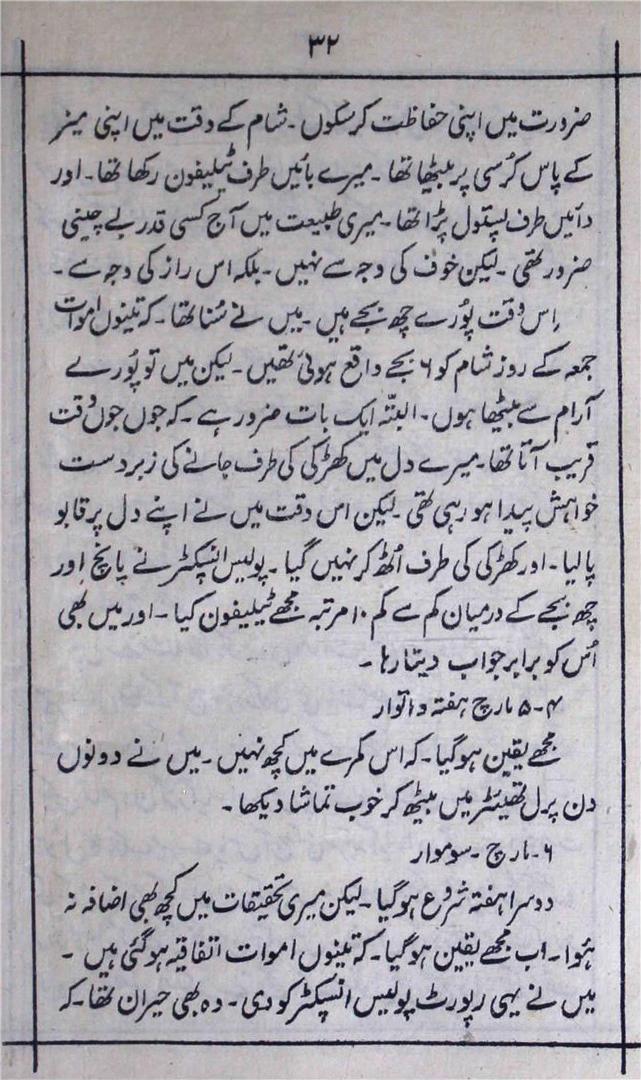 ۳۲
ضرورت میں اپنی حفاظت کر سکوں ۔ شام کے وقت میں اپنی میز
کے پاس کُرسی پر بیٹھا تھا ۔ میرے بائیں طرف ٹیلیفون رکھا تھا ۔ اور
دائیں طرف پستول پڑا تھا ۔ میری طبیعت میں آج کسی قدر بے چینی
ضرور تھی ۔ لیکن خوف کی وجہ سے نہیں ۔ بلکہ اس راز کی وجہ سے ۔
اِس وقت پُورے چھ بجے ہیں ۔ میں نے سُنا تھا ۔ کہ تینوں اموات
جمعہ کے روز شام کو ۶ بجے واقع ہوئی تھیں ۔ لیکن میں تو پُورے
آرام سے بیٹھا ہوں ۔ البتّہ ایک بات ضرور ہے ۔ کہ جوں جوں وقت
قریب آتا تھا ۔ میرے دل میں کھڑکی کی طرف جانے کی زبردست
خواہش پیدا ہو رہی تھی ۔ لیکن اس وقت میں نے اپنے دل پر قابو
پالیا ۔ اور کھڑکی کی طرف اُٹھ کر نہیں گیا ۔ پولیس انسپکٹر نے پانچ اور
چھ بجے کے درمیان کم سے کم ۱۰ مرتبہ مجھے ٹیلیفون کیا ۔ اور میں بھی
اُس کو برابر جواب دیتا رہا ۔
۴ ۔ ۵ مارچ ہفتہ و اتوار
مجھے یقین ہوگیا ۔ کہ اس کمرے میں کچھ نہیں ۔ میں نے دونوں
دن پرل تھیئٹر میں بیٹھ کر خوب تماشا دیکھا ۔
۶ ۔ مارچ ۔ سوموار
دوسرا ہفتہ شروع ہوگیا ۔ لیکن میری تحقیقات میں کچھ بھی اضافہ نہ
ہُوا ۔ اب مجھے یقین ہوگیا ۔ کہ تینوں اموات اتفاقیہ ہوگئی ہیں ۔
میں نے یہی رپورٹ پولیس انسپکٹر کو دی ۔ وہ بھی حیران تھا ۔ کہ